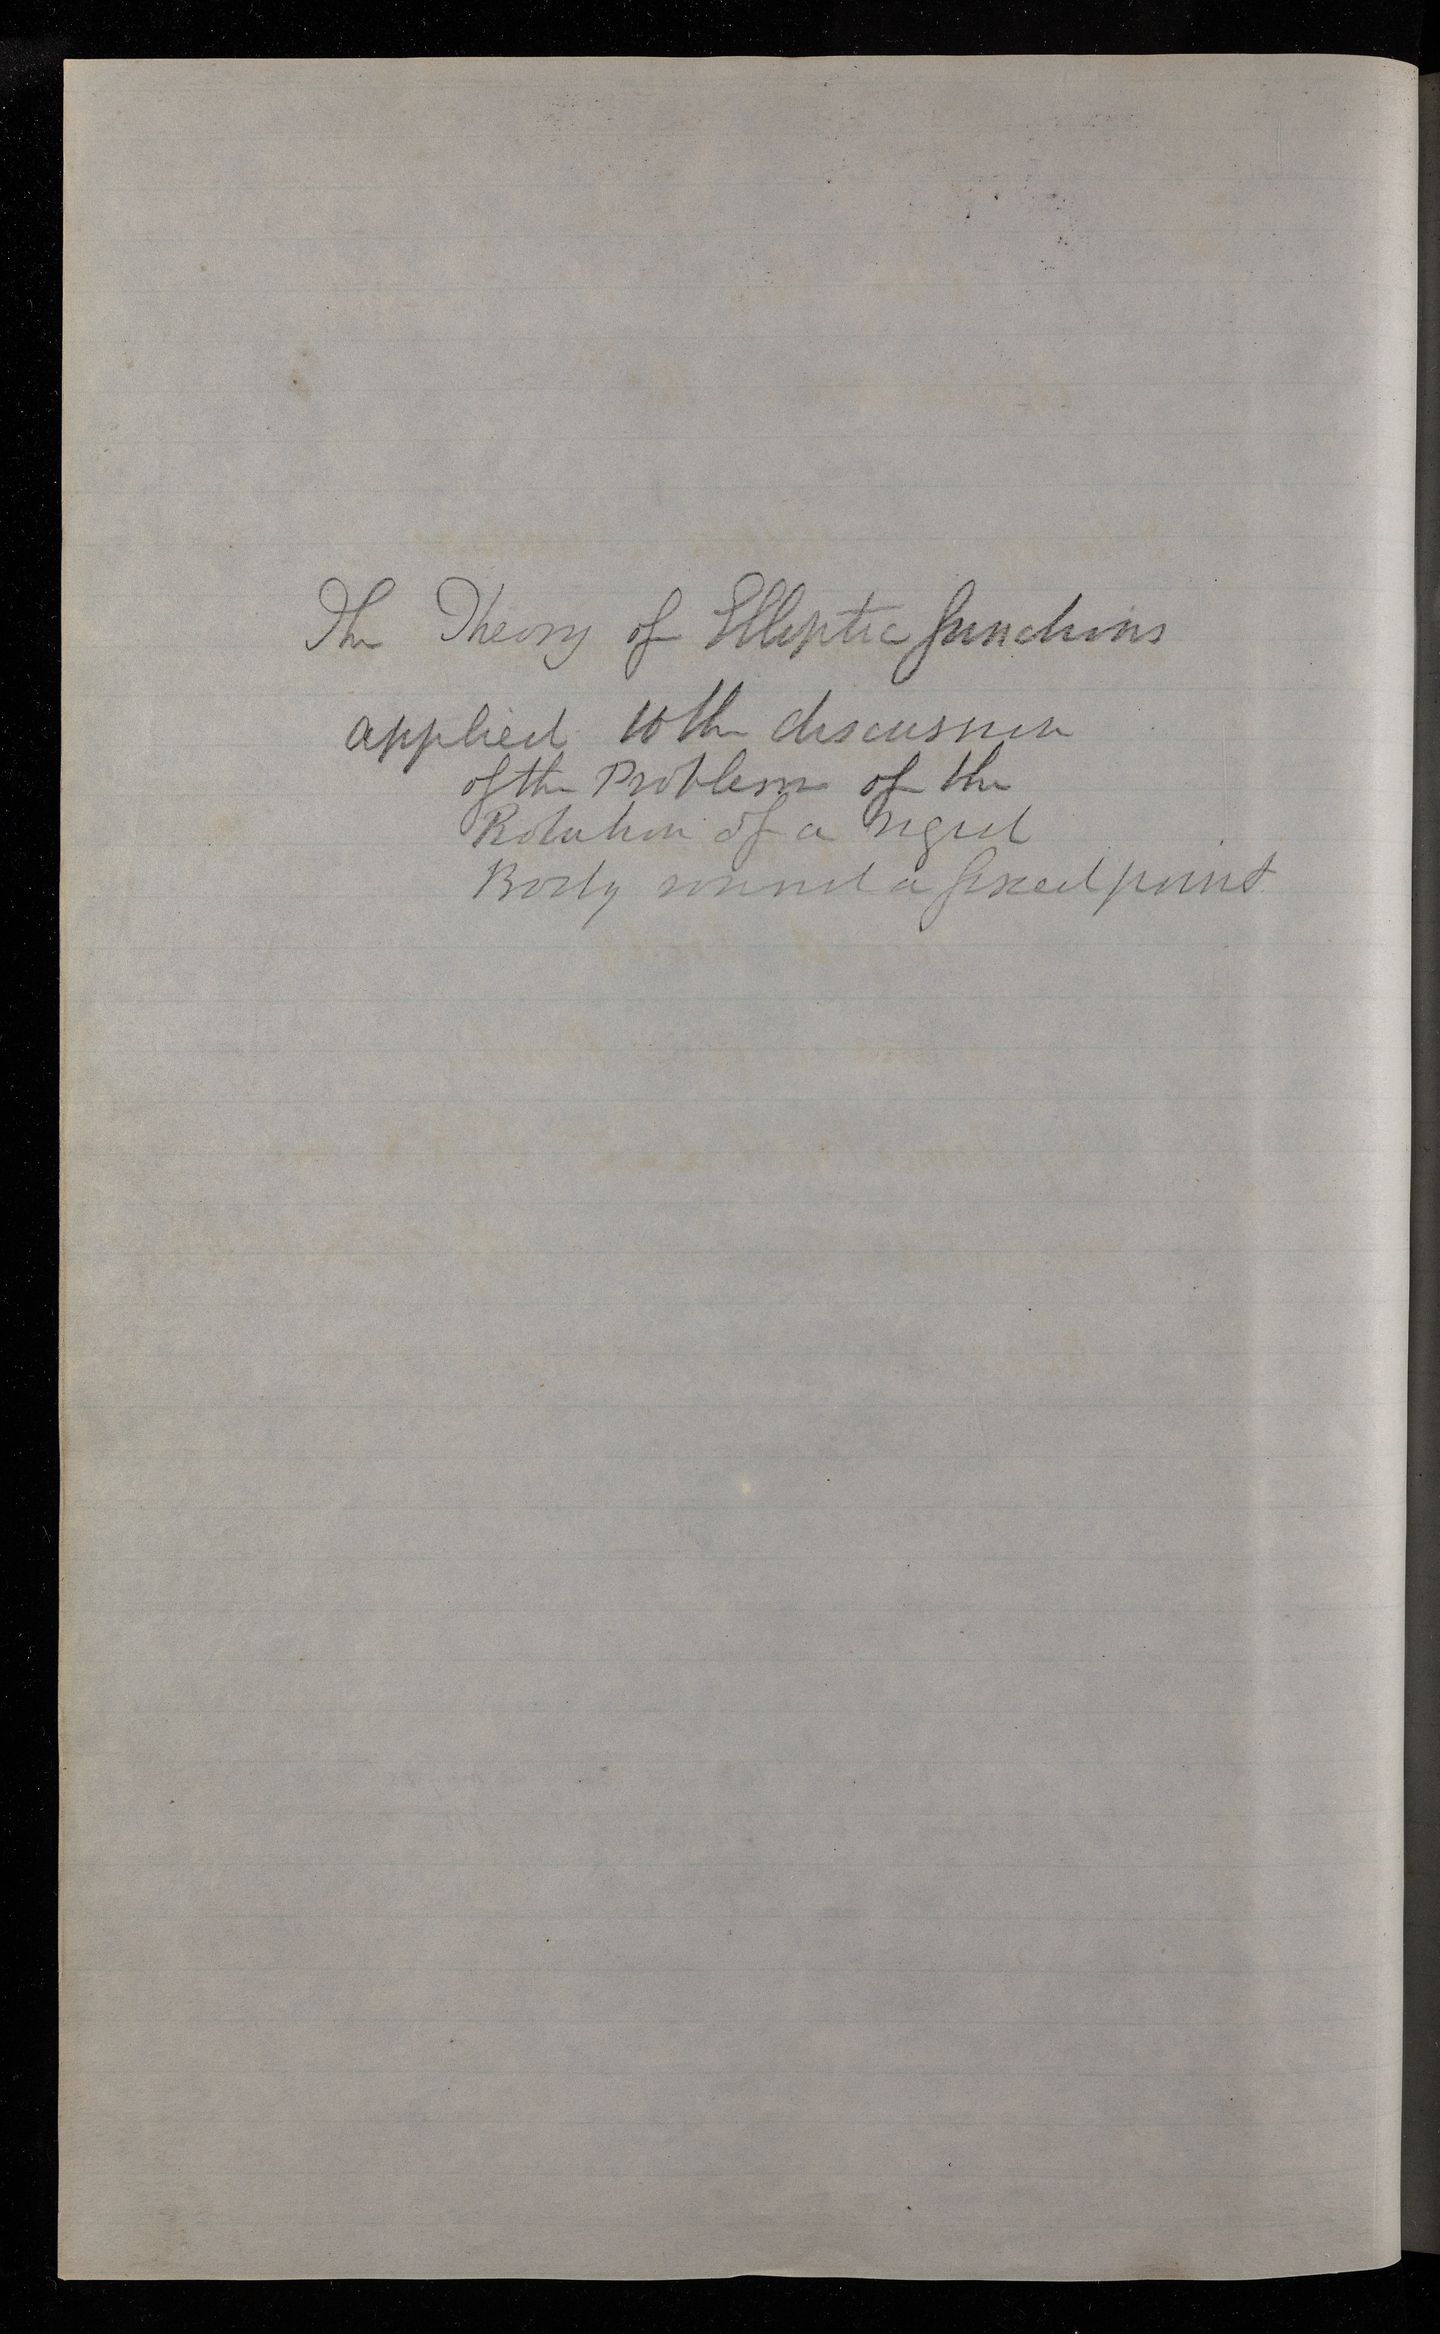 The Theory of Elliptic functions
applied to the discussion
of the Problem of the
Rotation of a rigid
Body round a fixed point